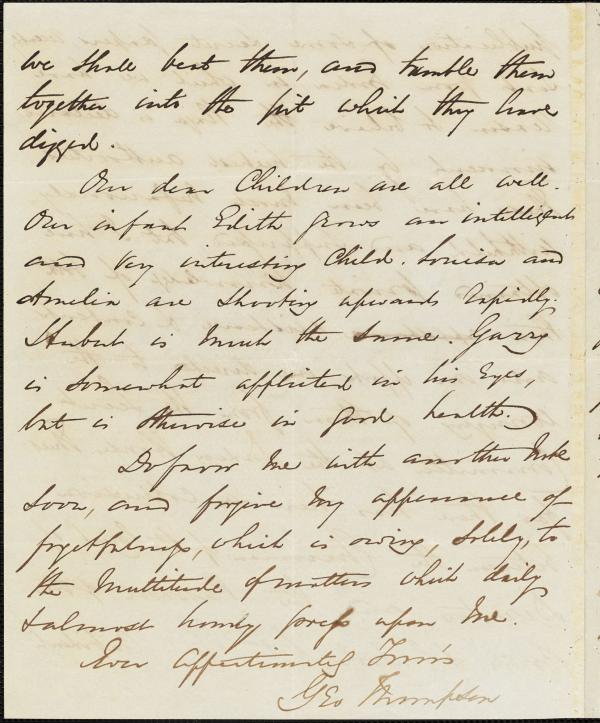 we shall beat them, and tumble them
together into the pit which they have
digged.
Our dear Children are all well.
Our infant Edith grows an intelligent
and very interesting Child. Louisa and
Amelia are shooting upwards rapidly.
Herbert is much the same. Garry
is somewhat afflicted in his Eyes,
but is otherwise in good health.
Do favor me with another Note
soon, and forgive my appearance of
forgetfulness, which is owing, solely, to
the multitude of matters which daily
& almost hourly press upon me.
Ever affectionately Yours
Geo Thompson